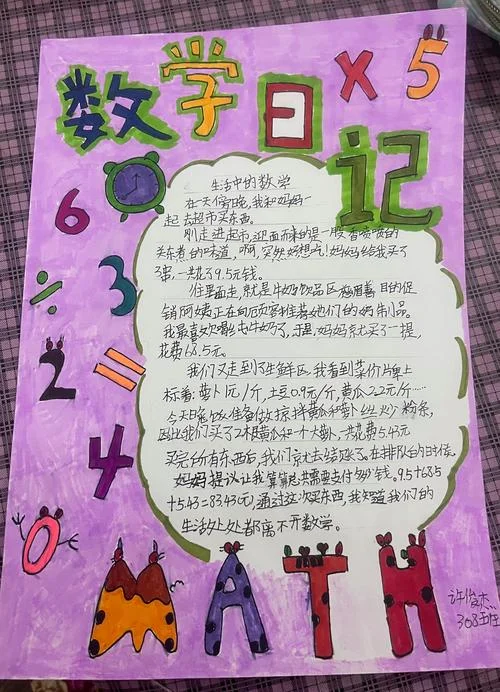 数学日记
× 5
6
÷ 3
2 =
4
0
生活中的数学
在一天傍晚,我和妈妈一
起去超市买东西。
刚走进超市,迎面而来的是一股香喷喷的
关东煮的味道,啊,突然好想吃!妈妈给我买了
3串,一共花了9.5元钱。
往里面走,就是牛奶饮品区,穿着 目的促
销阿姨正在向顾客推荐她们的奶制品。
我最喜欢喝 牛奶了,于是,妈妈就买了一提,
花费68.5元。
我们又走到了生鲜区,我看到菜价片牌上
标着:萝卜1元/斤,土豆0.9元/斤,黄瓜2.2元/斤……
今天晚饭准备做凉拌黄瓜和萝卜丝火 粉条,
因此我们买了2根黄瓜和一个大萝卜,共花费5.43元
买完所有东西后,我们就去结账了。在排队的时候,
妈妈提议让我算算总共需要支付多少钱。9.5+68.5
+5.43=83.43元,通过这次买东西,我知道我们的
生活处处都离不开数学。
MATH
许俊杰
308班